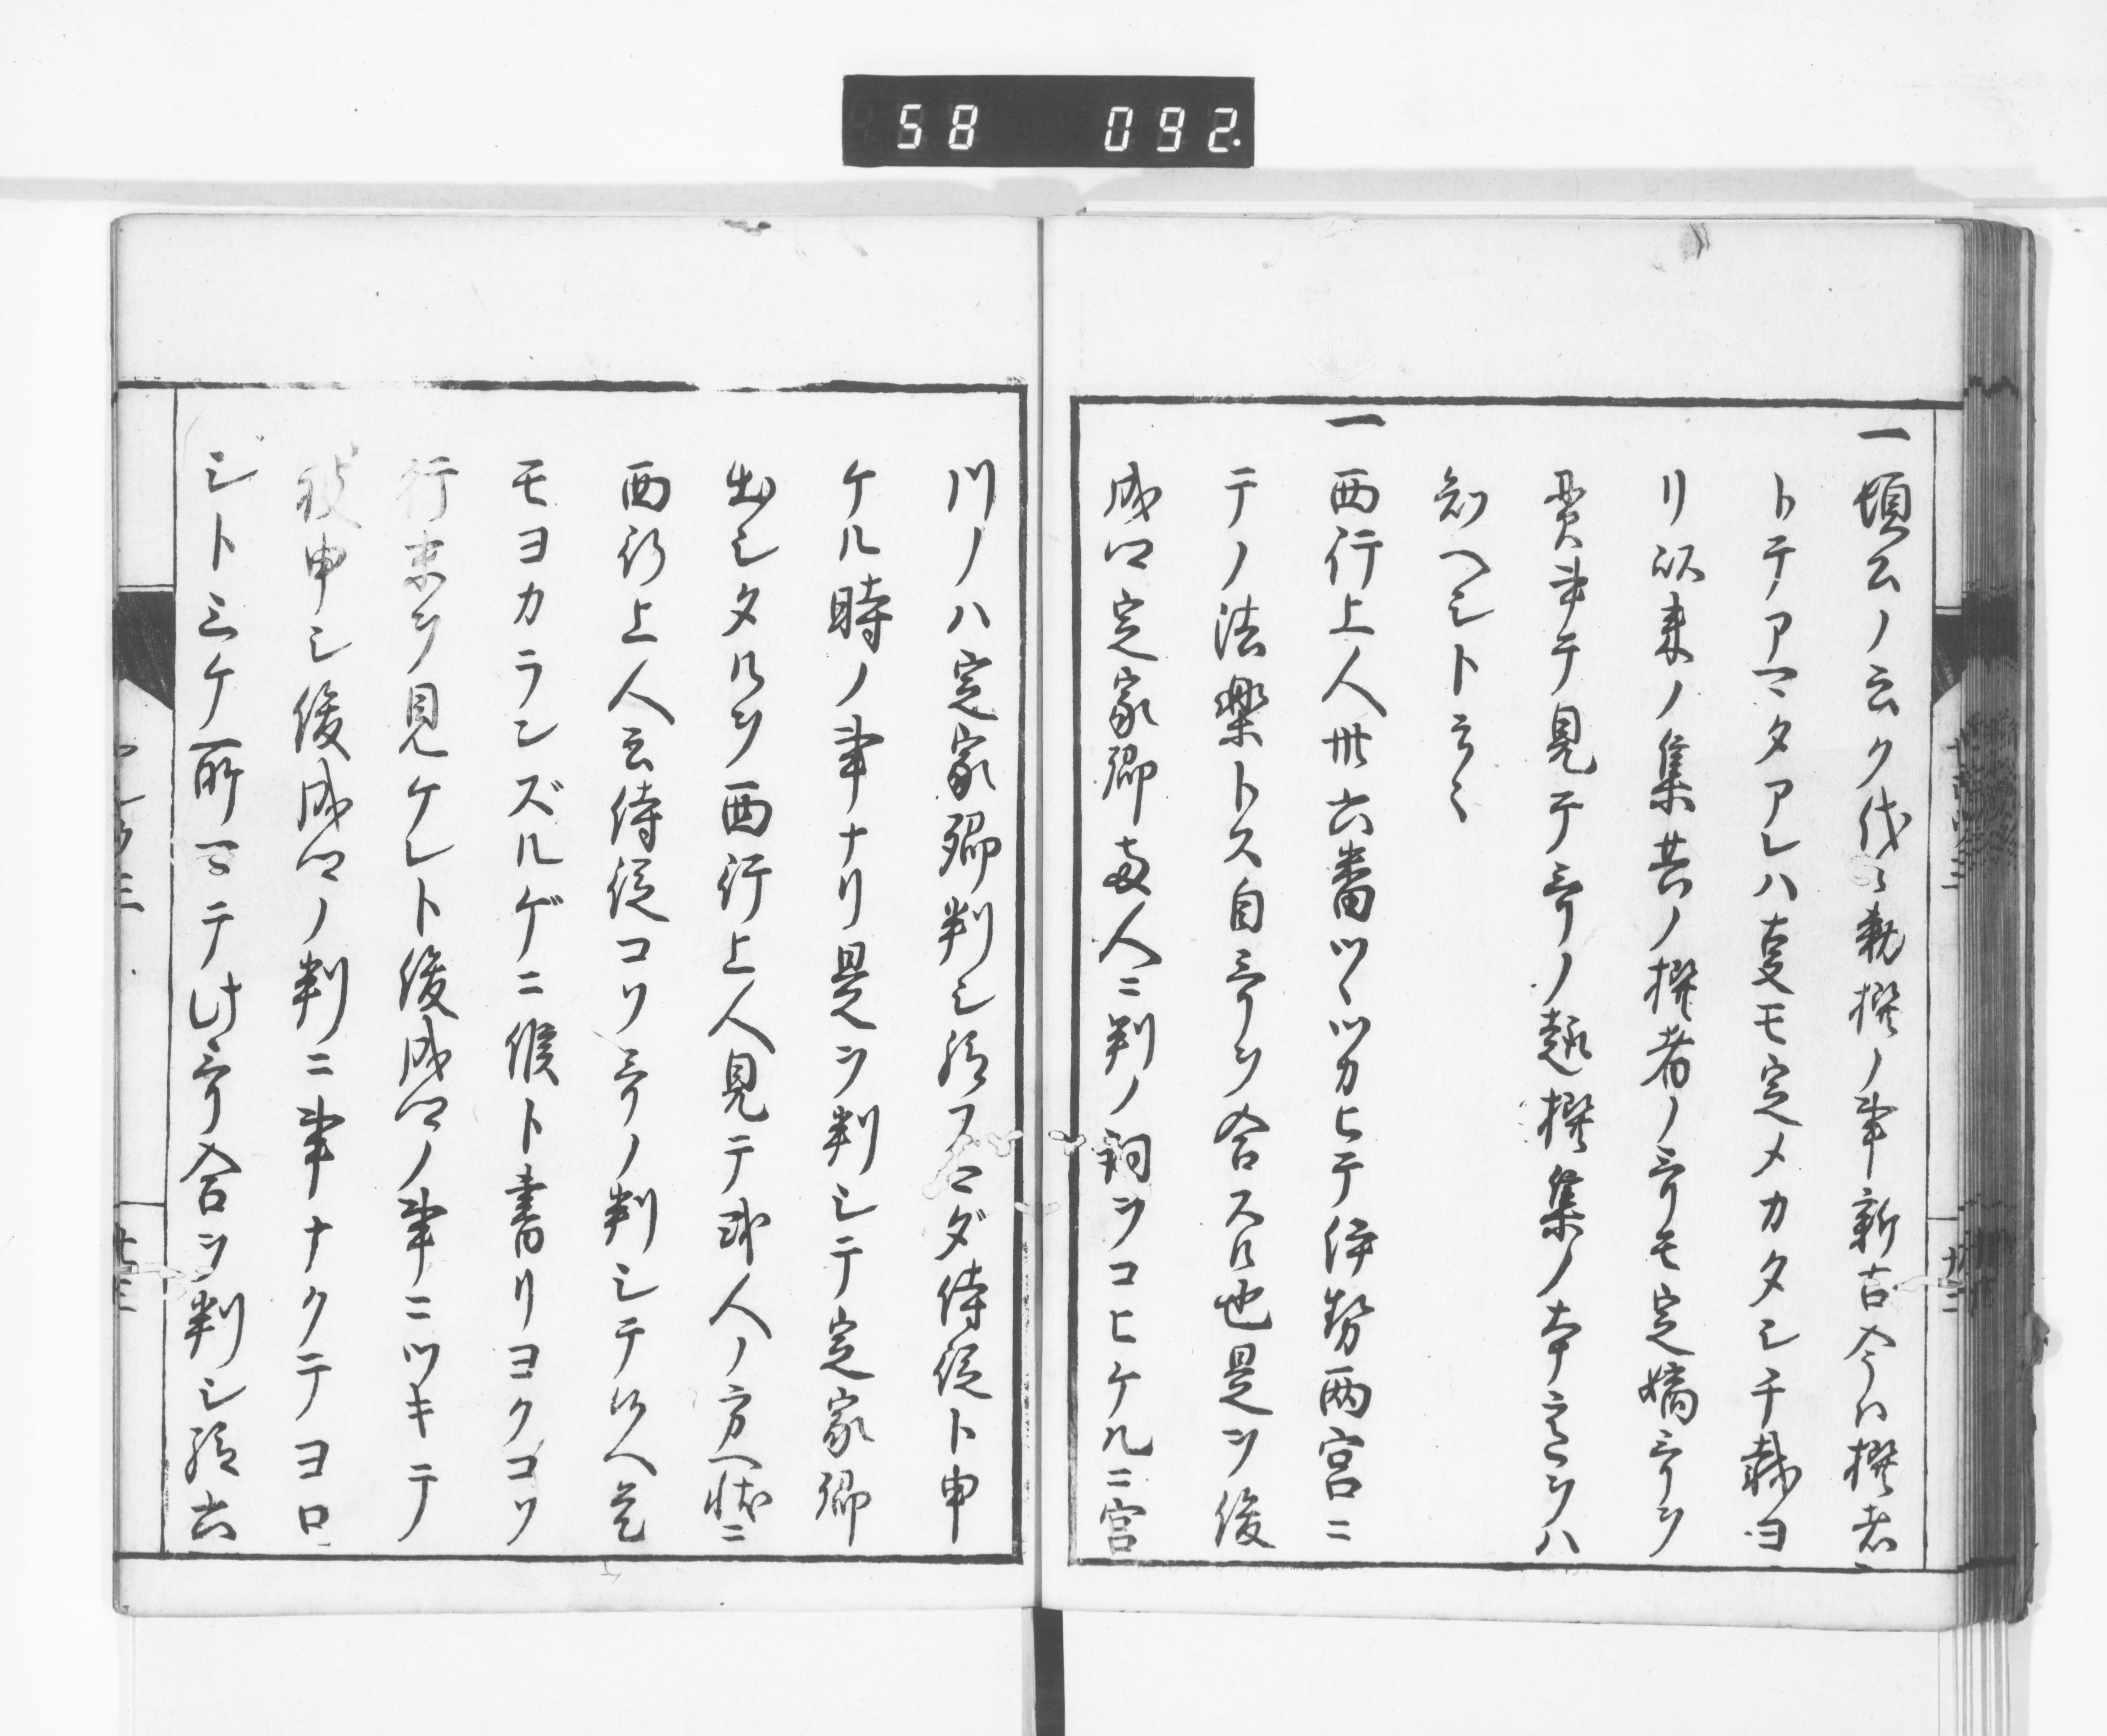 58 092.
一頃公ノ云ク代々勅撰ノ事新古今ハ撰者
トテアマタアレハ一定モ定メカタシ千載ヨ
リ以来ノ集共ノ撰者ノ哥モ定嫡哥ヲ
事テ見テ哥ノ趣撰集ノ本意ヲハ
知ヘシト云々
一西行上人卅六番ツヽツカヒテ伊勢両宮ニ
テノ法楽トス自哥ヲ合スル也是ヲ俊
成卿定家卿両人ニ判ノ詞ヲコヒケル二宮
川ノハ定家卿判シ給フマダ侍従ト申
ケル時ノ事ナリ是ヲ判シテ定家卿
出シタルヲ西行上人見テ或人ノ方ヘ状ニ
西行上人云侍従コソ哥ノ判シテ候ヘ是
モヨカランズルゲニ候ト書リヨクコソ
行末ヲ見ケレト俊成卿ノ事ニツキテ
彼申シ俊成卿ノ判ニ事ナクテヨロ
シトミケ所マテ此哥合ヲ判シ給